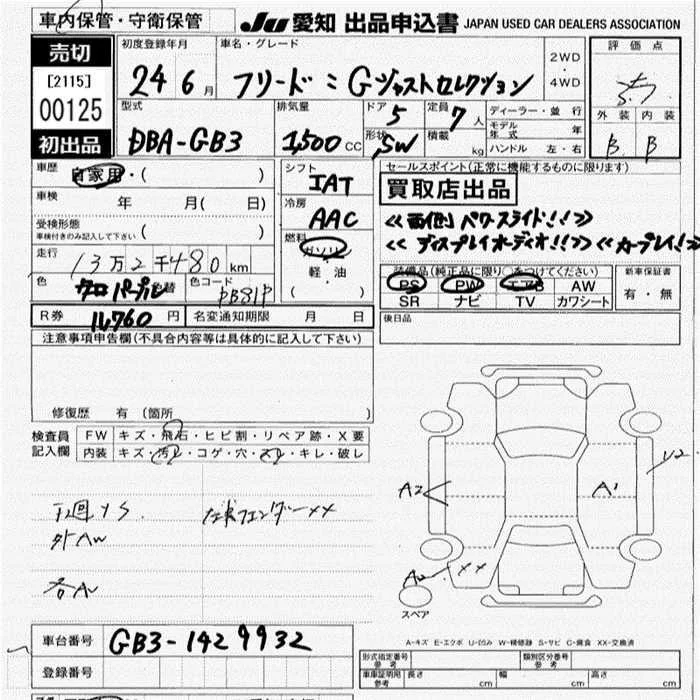 車内保管・守衛保管
JU 愛知 出品申込書 JAPAN USED CAR DEALERS ASSOCIATION
売切
[2115]
00125
初出品
初度登録年月 車名・グレード
24 6月 フリード : Gジャストセレクション
2WD ・ 4WD
評価点
外装 内装
B B
型式 排気量 ドア 定員
DBA-GB3 1,500 CC 5 7人
形状 SW 積載 kg
ディーラー・並行
モデル年式 年
ハンドル 左・右
車歴 自家用・( )
車検 年 月( 日)
受検形態 ( )
車検付きのみ記入して下さい
走行 13万2千480km
色 クロパープル 色替 色コード PB81P
シフト IAT
冷房 AAC
燃料 ガソリン
軽油
( )
セールスポイント(正常に機能するものに限ります)
買取店出品
<<両側パワースライド!!>>
<<ディスプレイオーディオ!!>> <<カープレイ!>>
装備品(純正品に限り○をつけてください)
PS PW エアB AW
SR ナビ TV カワシート
新車保証書
有・無
R券 14760円 名変通知期限 月 日
後日品
注意事項申告欄(不具合内容等は具体的に記入して下さい)
修復歴 有 〔箇所 〕
検査員記入欄
FW キズ・飛石・ヒビ割・リペア跡・X要
内装 キズ・汚レ・コゲ・穴・スレ・キレ・破レ
下廻YS. 左フェンダーXX
外AW
各A
A2 A1 U2
A2 XX
スペア
A-キズ E-エクボ U-凹み W-補修跡 S-サビ C-腐食 XX-交換済
車台番号 GB3-1429932
登録番号
形式指定番号 参考 類別区分番号 参考
車庫証明用 参考 長さ cm 幅 cm 高さ cm